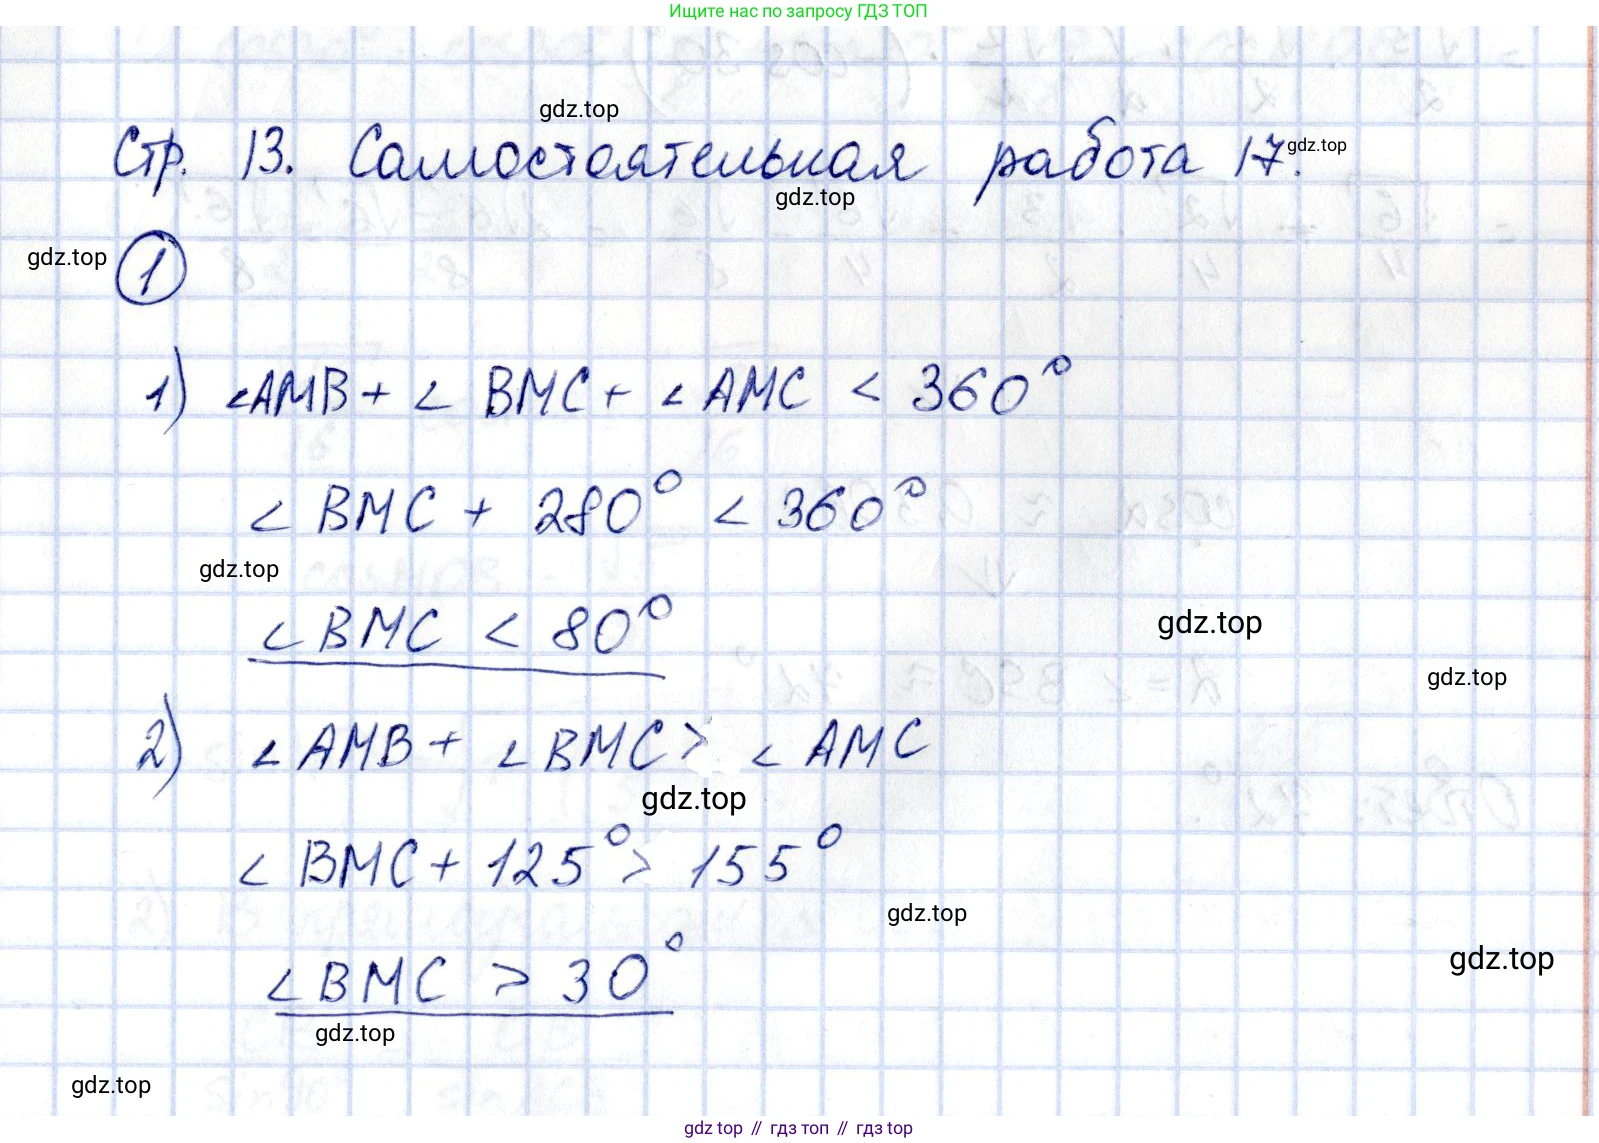 Ищите нас по запросу ГДЗ ТОП
gdz.top
Стр. 13. Самостоятельная работа 17.
gdz.top
gdz.top
gdz.top
1
1) ∠AMB + ∠BMC + ∠AMC < 360°
∠BMC + 280° < 360°
gdz.top
∠BMC < 80°
gdz.top
gdz.top
2) ∠AMB + ∠BMC > ∠AMC
gdz.top
∠BMC + 125° > 155°
gdz.top
gdz.top
∠BMC > 30°
gdz.top
gdz.top
gdz top // гдз топ // гдз top